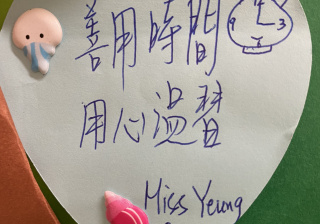 善用時間
9 3
用心溫習
Miss Yeung